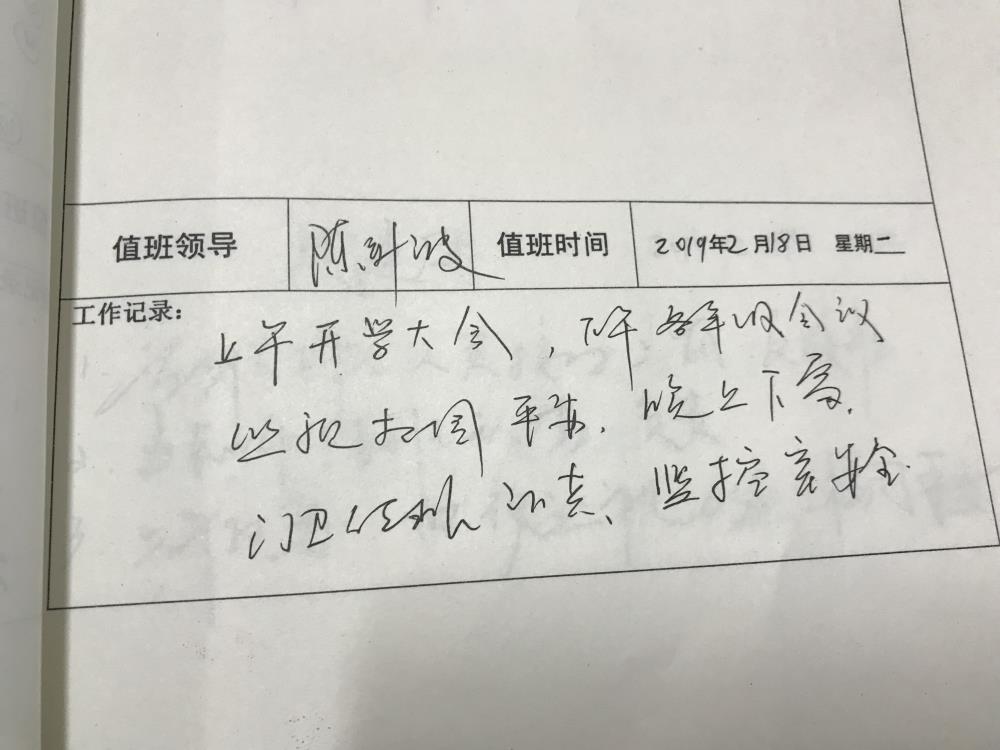 值班领导 陈 波 值班时间 2019年2月18日 星期二
工作记录：
上午开学大会，下午各年级会议
巡视校园平安，晚上下雪，
门卫值班认真、监控室安全.